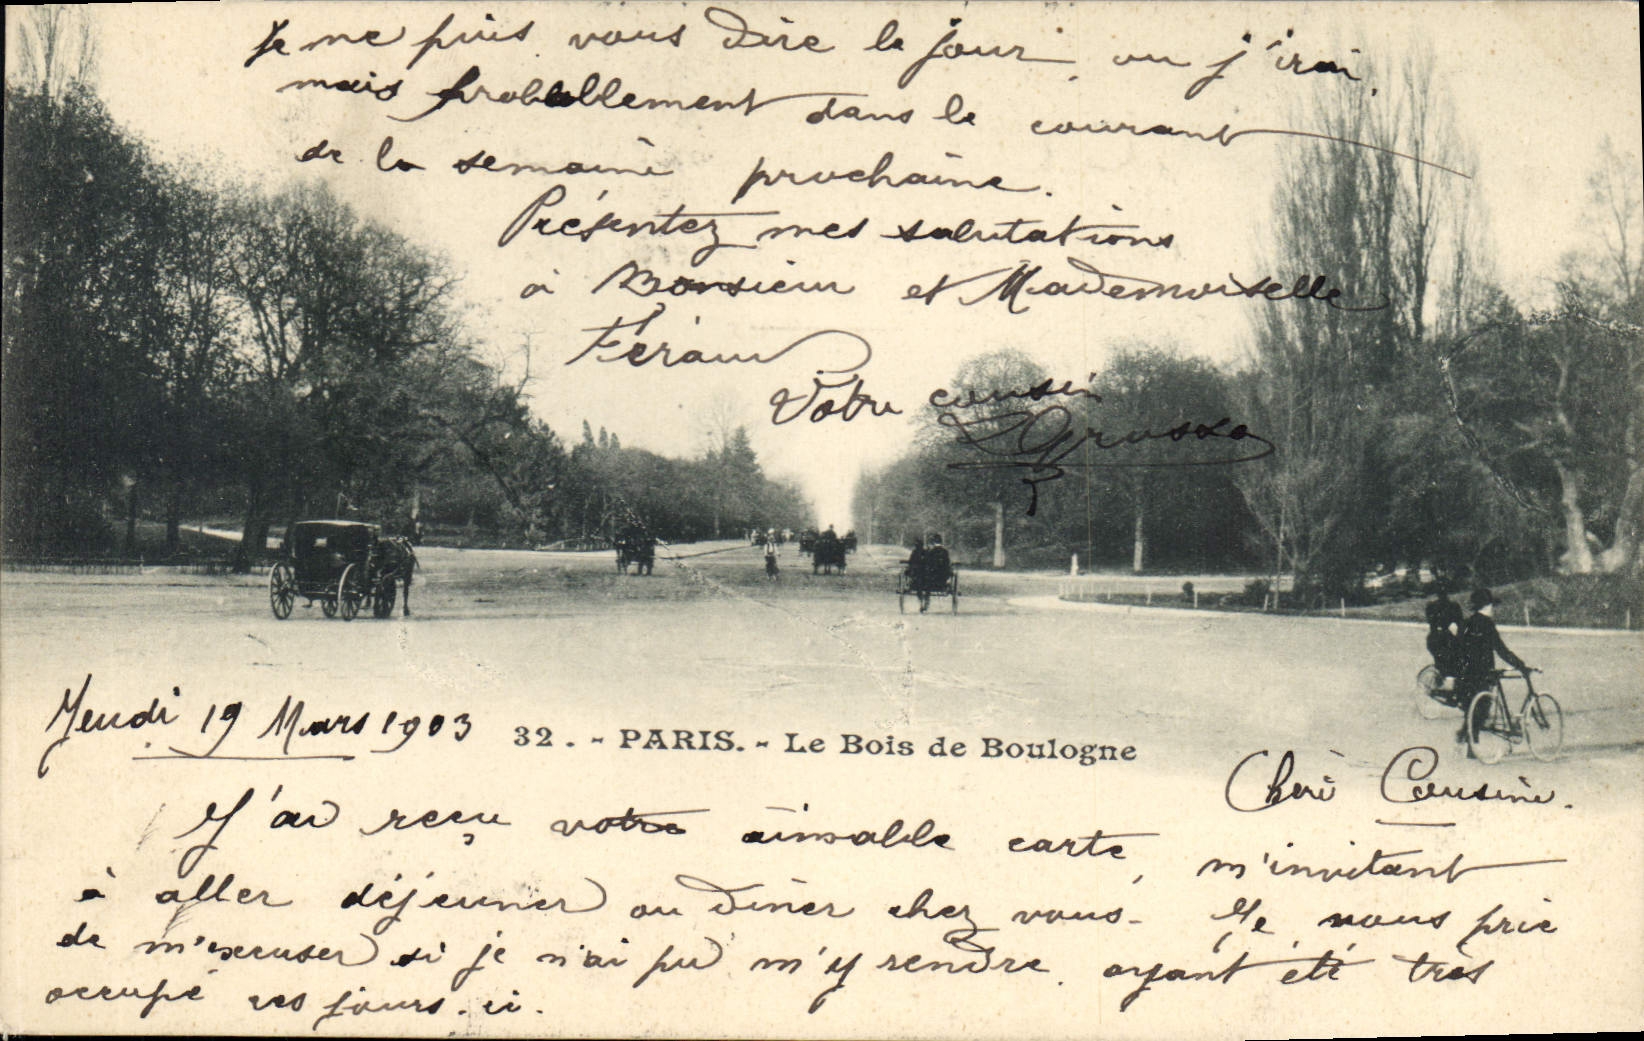 Jeudi 19 Mars 1903
32. - PARIS. - Le Bois de Boulogne
Chère Cousine.
J'ai reçu votre aimable carte, m'invitant
à aller déjeuner ou diner chez vous. Je vous prie
de m'excuser si je n'ai pu m'y rendre, ayant été très
occupé ces jours-ci.
Je ne puis vous dire le jour ou j'irai,
mais probablement dans le courant
de la semaine prochaine.
Présentez mes salutations
à Monsieur et Mademoiselle
Féraud
Votre cousin